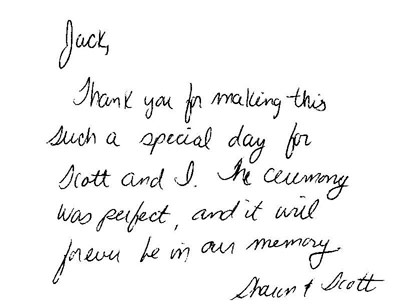 Jack,
Thank you for making this
such a special day for
Scott and I. The ceremony
was perfect, and it will
forever be in our memory.
Shawn & Scott